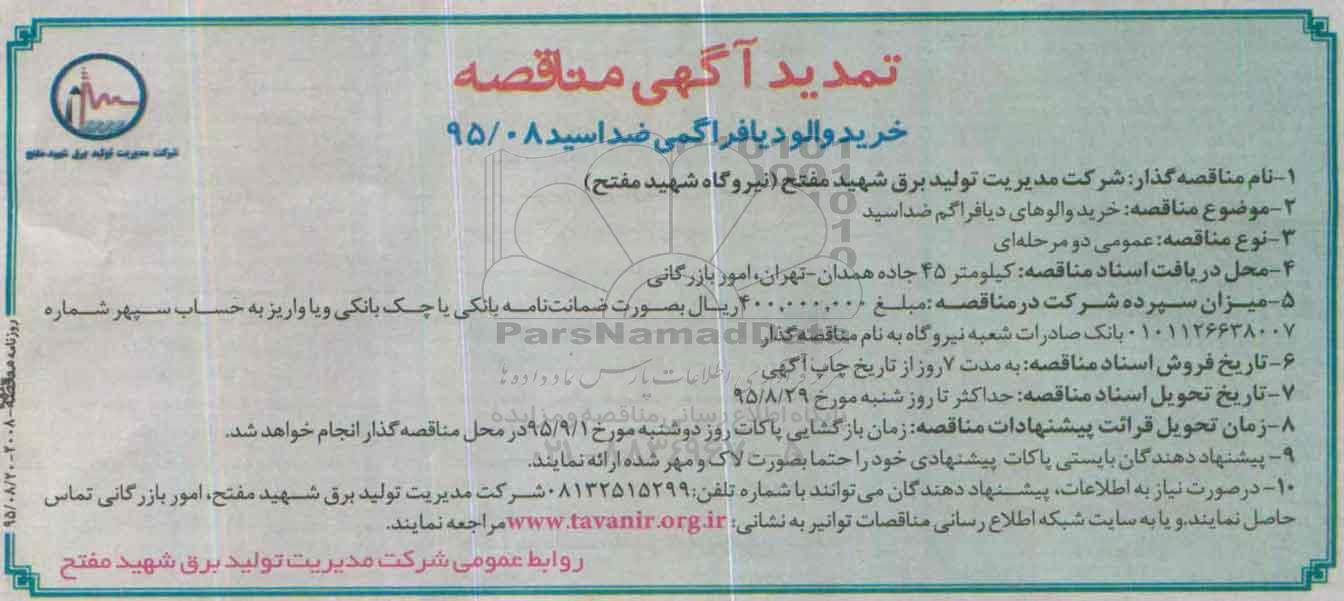 تمدید آگهی مناقصه
خرید والو دیافراگمی ضداسید ۹۵/۰۸
شرکت مدیریت تولید برق شهید مفتح
۱-نام مناقصه گذار: شرکت مدیریت تولید برق شهید مفتح (نیروگاه شهید مفتح)
۲-موضوع مناقصه: خرید والوهای دیافراگم ضداسید
۳-نوع مناقصه: عمومی دو مرحله‌ای
۴-محل دریافت اسناد مناقصه: کیلومتر ۴۵ جاده همدان-تهران، امور بازرگانی
۵-میزان سپرده شرکت در مناقصه: مبلغ ۴۰۰,۰۰۰,۰۰۰ ریال بصورت ضمانت‌نامه بانکی یا چک بانکی و یا واریز به حساب سپهر شماره
۰۱۰۱۱۲۶۶۳۸۰۰۷ بانک صادرات شعبه نیروگاه به نام مناقصه گذار
۶-تاریخ فروش اسناد مناقصه: به مدت ۷ روز از تاریخ چاپ آگهی
۷-تاریخ تحویل اسناد مناقصه: حداکثر تا روز شنبه مورخ ۹۵/۸/۲۹
۸-زمان تحویل قرائت پیشنهادات مناقصه: زمان بازگشایی پاکات روز دوشنبه مورخ ۹۵/۹/۱ در محل مناقصه گذار انجام خواهد شد.
۹- پیشنهاد دهندگان بایستی پاکات پیشنهادی خود را حتما بصورت لاک و مهر شده ارائه نمایند.
۱۰- درصورت نیاز به اطلاعات، پیشنهاد دهندگان می‌توانند با شماره تلفن: ۰۸۱۳۲۵۱۵۲۹۹ شرکت مدیریت تولید برق شهید مفتح، امور بازرگانی تماس
حاصل نمایند. و یا به سایت شبکه اطلاع رسانی مناقصات توانیر به نشانی: www.tavanir.org.ir مراجعه نمایند.
روابط عمومی شرکت مدیریت تولید برق شهید مفتح
روزنامه مناقصه - ۲۰۰۸ - ۹۵/۰۸/۲۰
ParsNamadData
پایگاه اطلاع رسانی مناقصه و مزایده